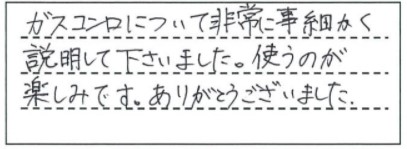 ガスコンロについて非常に事細かく
説明して下さいました。使うのが
楽しみです。ありがとうございました.